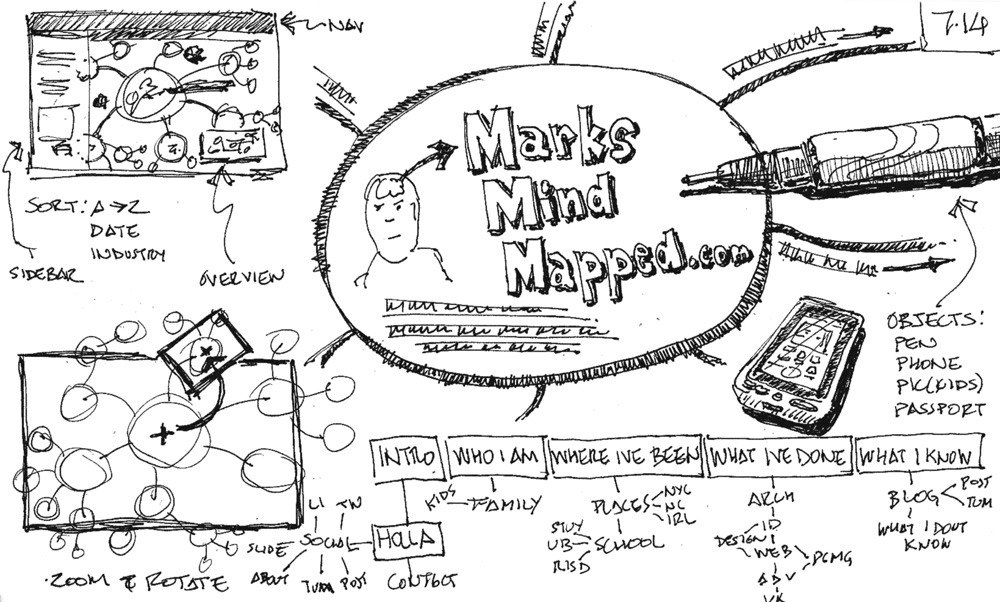 NAV
7.14
SORT: A→Z
DATE
INDUSTRY
SIDEBAR
OVERVIEW
Marks
Mind
Mapped.com
OBJECTS:
PEN
PHONE
PIC(KIDS)
PASSPORT
ZOOM & ROTATE
INTRO
WHO I AM
WHERE I'VE BEEN
WHAT I'VE DONE
WHAT I KNOW
KIDS
FAMILY
PLACES
NYC
NC
IRL
STUY
UB
RISD
SCHOOL
ARCH
ID
DESIGN
WEB
PCMG
ADV
BLOG
POST
TUM
WHAT I DONT
KNOW
HOLLA
CONTACT
LI
TW
SLIDE
SOCIAL
ABOUT
TUM
POST